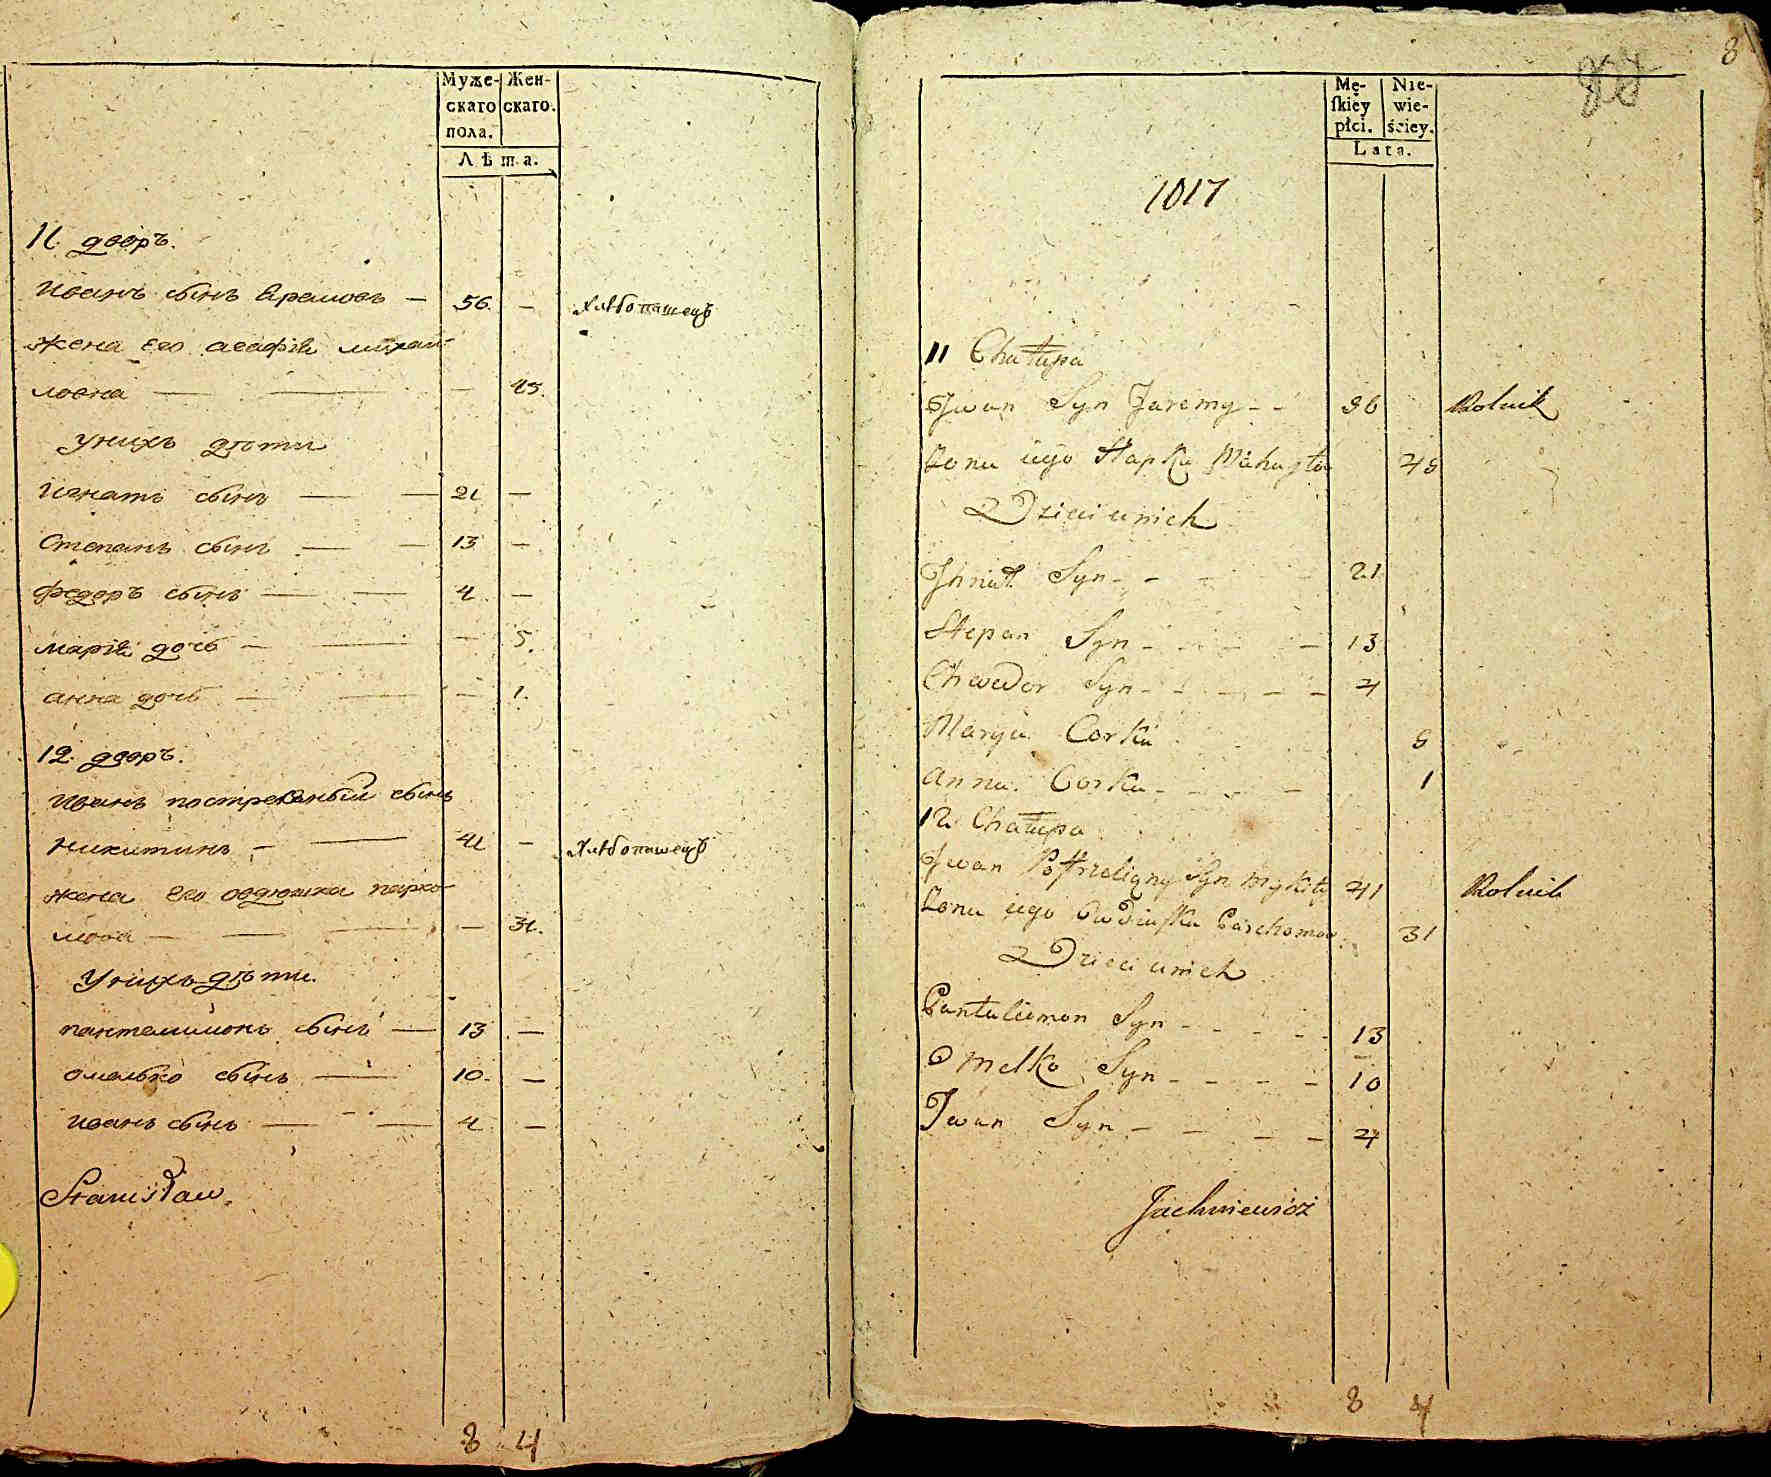 Муже-
скаго
пола.
Жен-
скаго.
Лѣта.
11. дворъ.
Иванъ сынъ Яремовъ — 56. — хлѣбопашецъ
жена его агафія михай-
ловна — — — 45.
унихъ дѣти
игнатъ сынъ — — 21 —
степанъ сынъ — — 13 —
федоръ сынъ — — 4 —
марія дочь — — — 5.
анна дочь — — — 1.
12. дворъ.
Иванъ сынъ
никитинъ — — 41 — хлѣбопашецъ
жена его овдюшка пархо-
мова — — — — 31.
унихъ дѣти.
пантелимонъ сынъ — 13 —
омелько сынъ — 10. —
иванъ сынъ — — 4 —
Stanisław
8 4
8
Mę-
skiey
płci.
Nie-
wie-
ściey.
Lata.
1017
11 Chałupa
Jwan Syn Jaremy - - 56 Rolnik
Żona iego Hapka 45
Dzieci unich
Jhnat Syn - - 21
Stepan Syn - - - 13
Chwedor Syn - - - - - 4
Marya Corka 5
Anna Corka - - - - 1
12 Chałupa
Jwan Syn Mykity 41 Rolnik
Żona iego Owdiuszka Parchomow 31
Dzieci unich
Pantalimon Syn - - - - 13
Omelko Syn - - - - 10
Jwan Syn - - - - 4
Jachniewicz
8 4